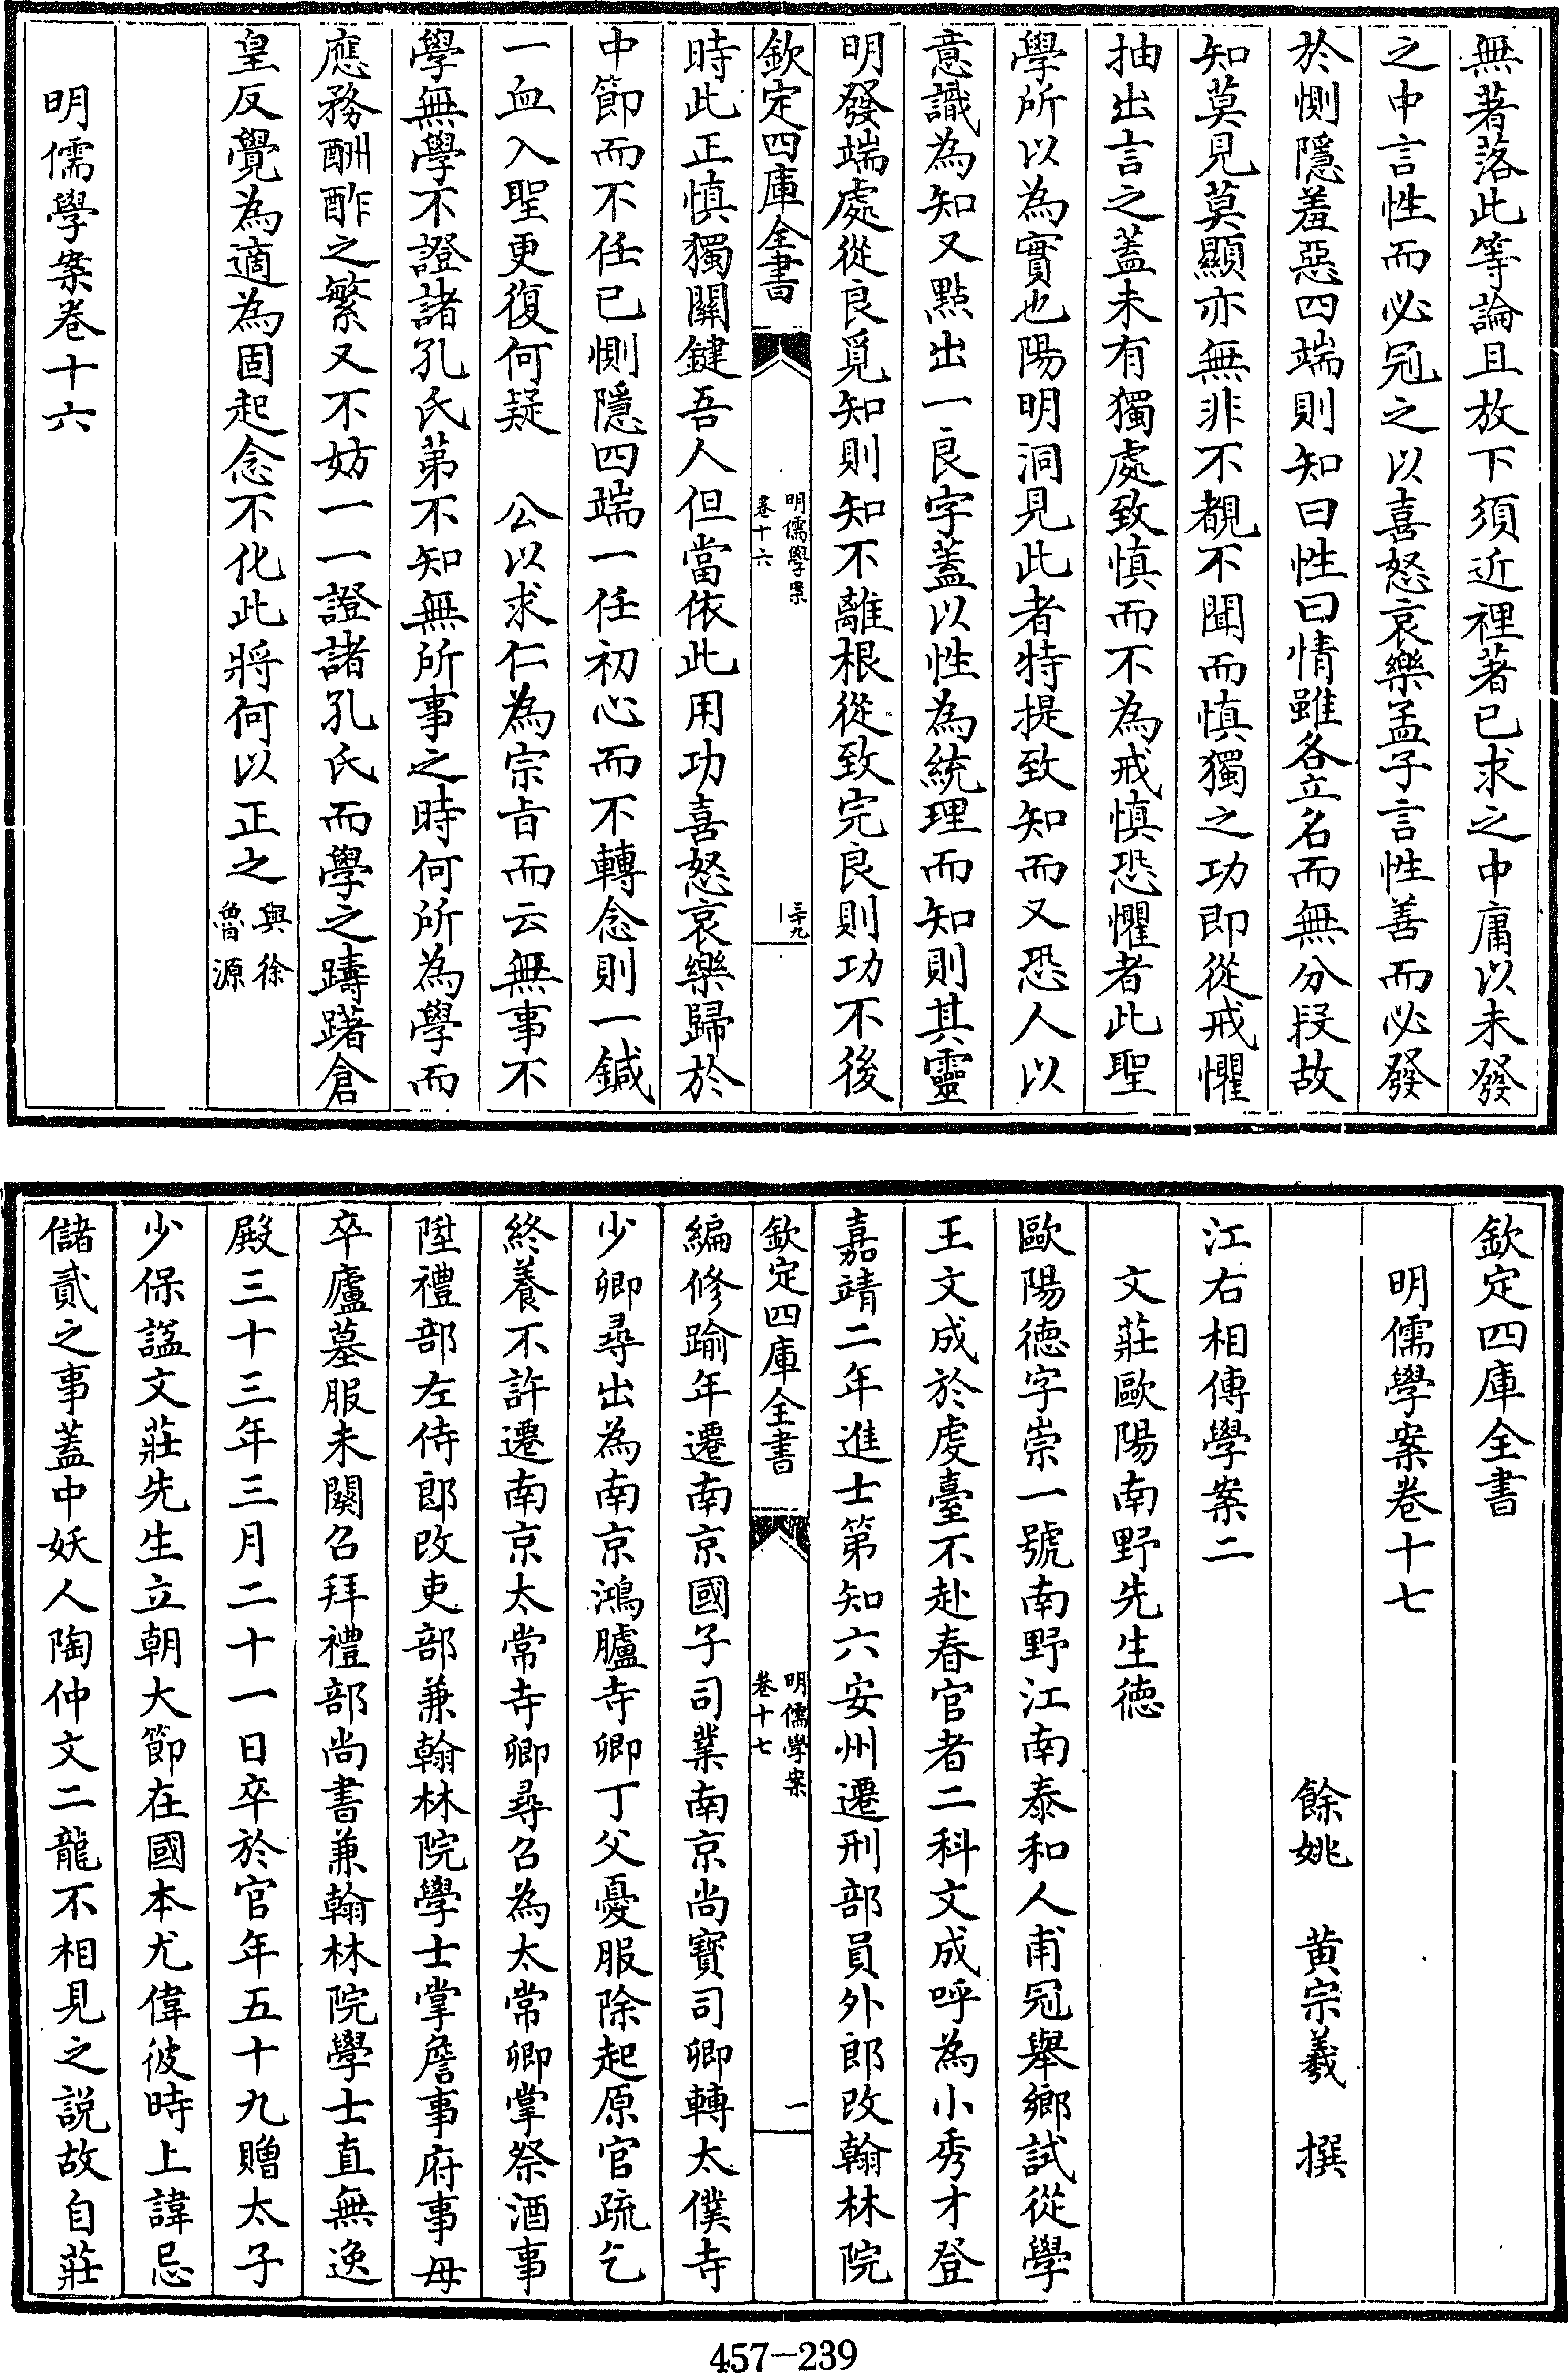 無著落此等論且放下須近裡著已求之中庸以未發
之中言性而必冠之以喜怒哀樂孟子言性善而必發
於惻隱羞惡四端則知曰性曰情雖各立名而無分段故
知莫見莫顯亦無非不覩不聞而慎獨之功即從戒懼
抽出言之蓋未有獨處致慎而不為戒慎恐懼者此聖
學所以為實也陽明洞見此者特提致知而又恐人以
意識為知又點出一良字蓋以性為統理而知則其靈
明發端處從良覓知則知不離根從致完良則功不後
欽定四庫全書
明儒學案
卷十六
三十九
時此正慎獨關鍵吾人但當依此用功喜怒哀樂歸於
中節而不任已惻隱四端一任初心而不轉念則一鍼
一血入聖更復何疑　公以求仁為宗旨而云無事不
學無學不證諸孔氏第不知無所事之時何所為學而
應務酬酢之繁又不妨一一證諸孔氏而學之躊躇倉
皇反覺為適為固起念不化此將何以正之與徐魯源
明儒學案卷十六
欽定四庫全書
明儒學案卷十七
餘姚　黄宗羲　撰
江右相傳學案二
文莊歐陽南野先生德
歐陽德字崇一號南野江南泰和人甫冠舉鄉試從學
王文成於虔臺不赴春官者二科文成呼為小秀才登
嘉靖二年進士第知六安州遷刑部員外郎改翰林院
欽定四庫全書
明儒學案
卷十七
一
編修踰年遷南京國子司業南京尚寳司卿轉太僕寺
少卿尋出為南京鴻臚寺卿丁父憂服除起原官疏乞
終養不許遷南京太常寺卿尋召為太常卿掌祭酒事
陞禮部左侍郎改吏部兼翰林院學士掌詹事府事母
卒廬墓服未闋召拜禮部尚書兼翰林院學士直無逸
殿三十三年三月二十一日卒於官年五十九贈太子
少保諡文莊先生立朝大節在國本尤偉彼時上諱忌
儲貳之事蓋中妖人陶仲文二龍不相見之説故自莊
457-239